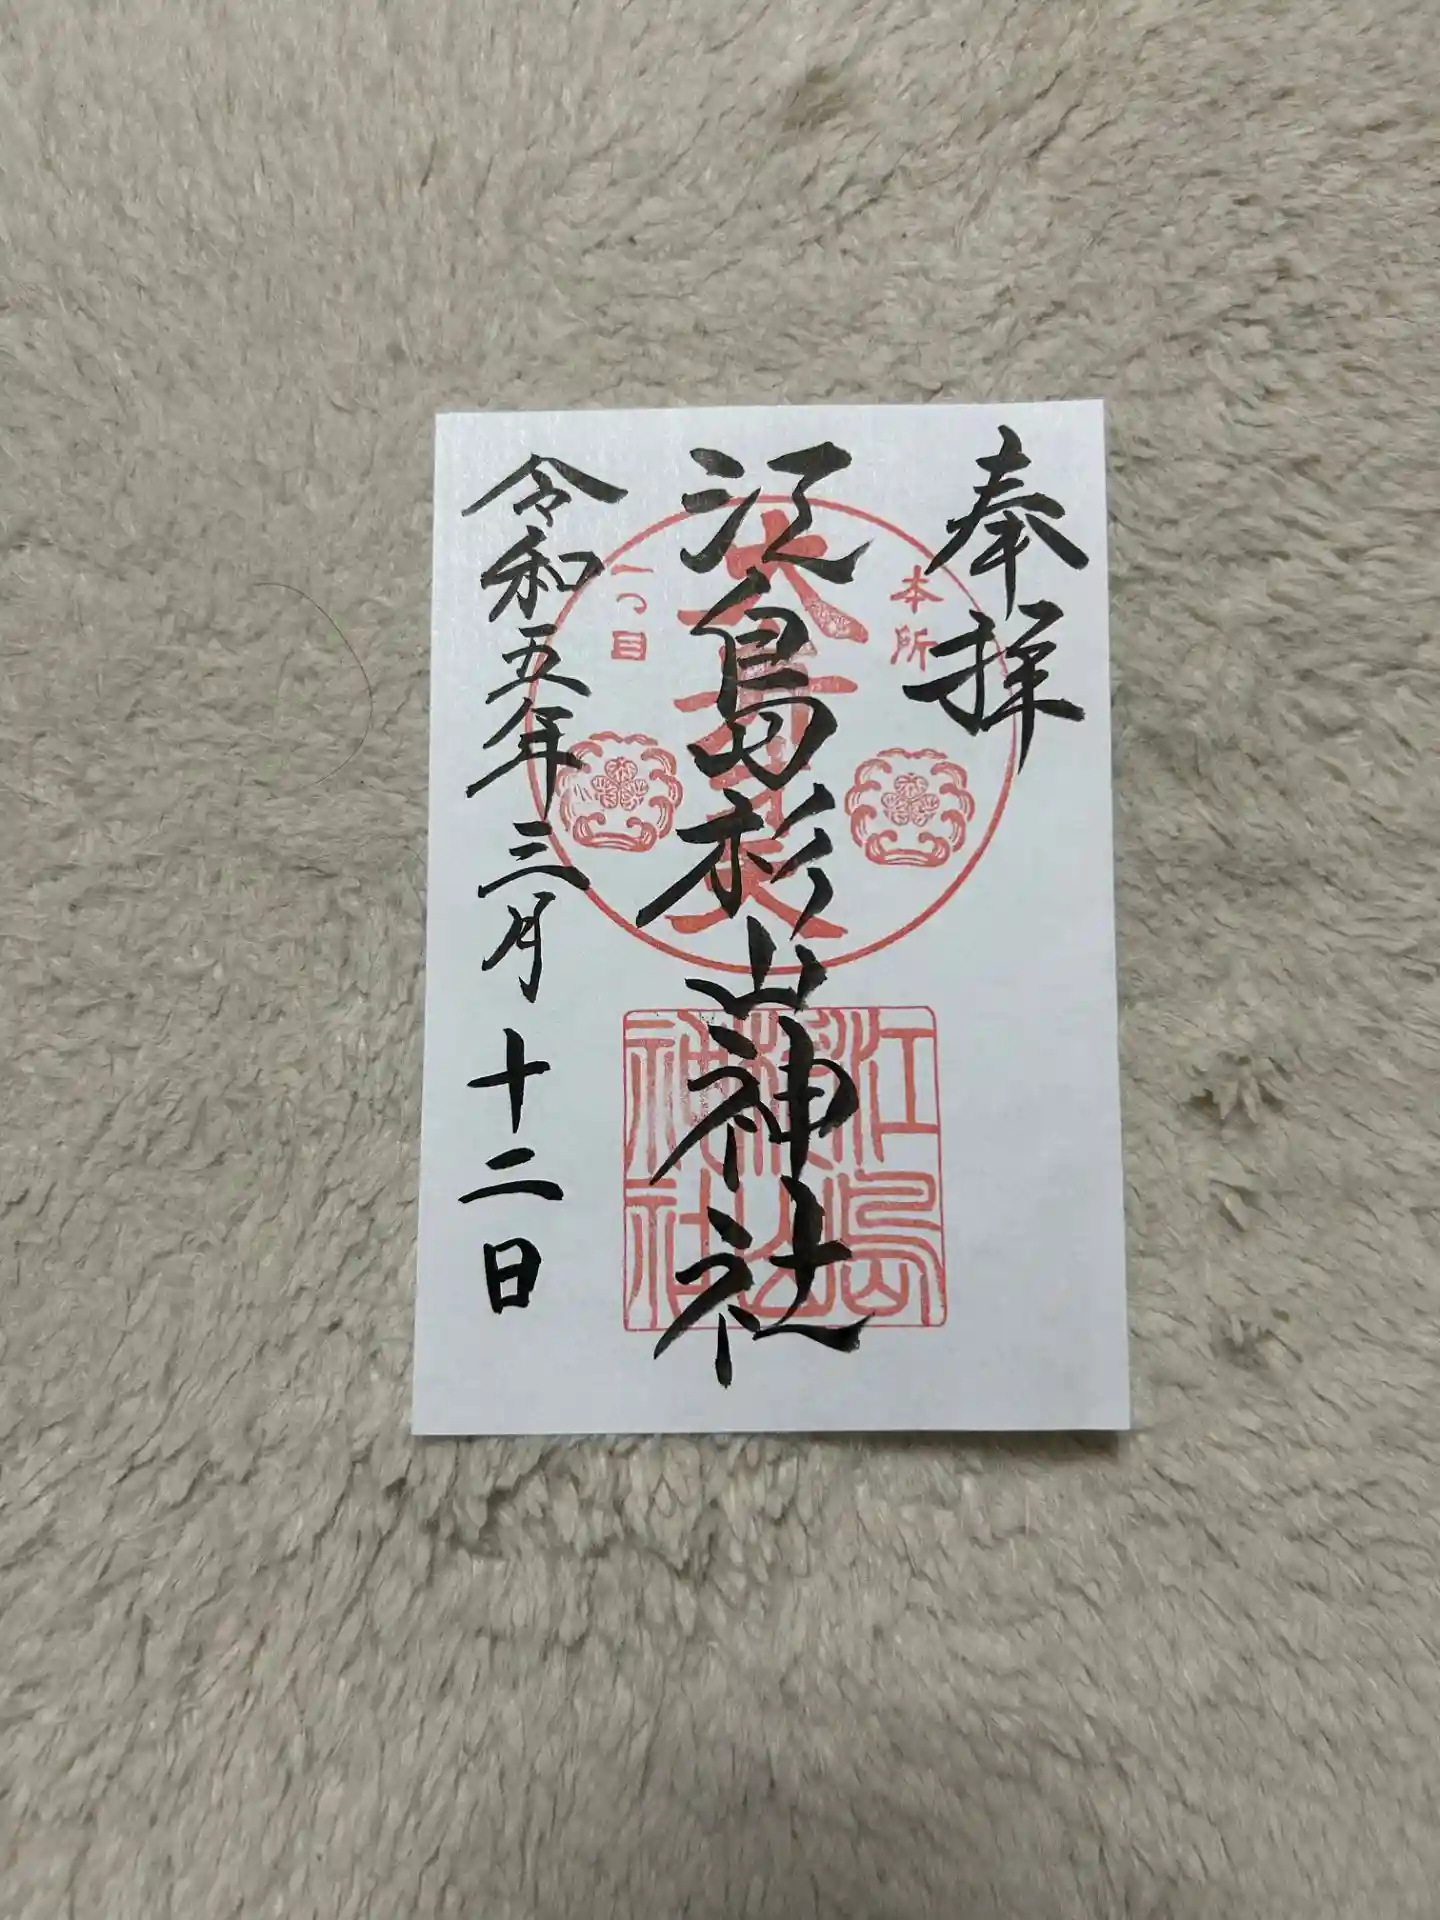 奉拝
本所
江島杉山神社
一つ目
令和五年三月十二日
江島
杉山
神社